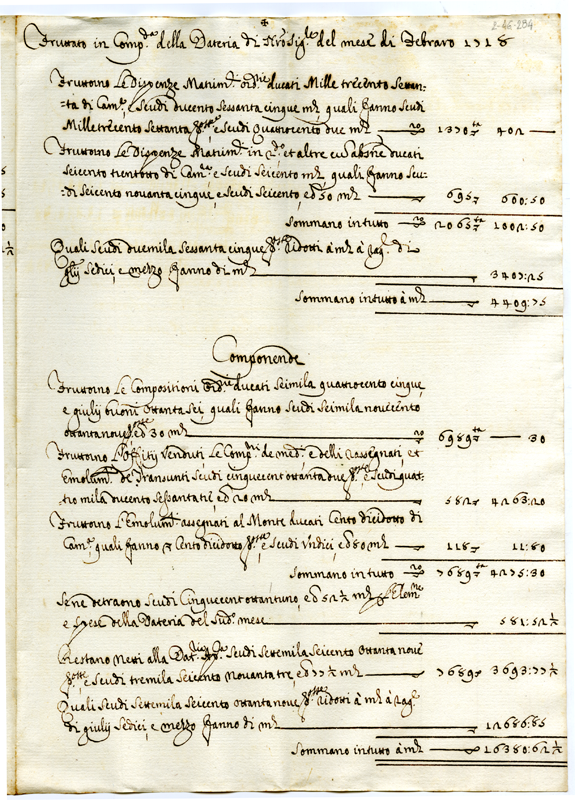 2-46-284
Fruttato in Comp.da della Dateria di Nro Sig.re del mese di Febraro 1718
Fruttorno Le Dispenze Matim.li ord.rie ducati Mille trecento settan-
-ta di Cam.a, e scudi ducento sessanta cinque m.ta quali fanno scudi
Mille trecento settanta e scudi quattrocento due m.ta 1370 402
Fruttorno Le Dispenze Matim.li in et altre ducati
seicento trentotto di Cam.a, e scudi seicento m.ta, quali fanno scu-
-di seicento novanta cinque, e scudi seicento, e 50 m.ta 695 600:50
Sommano in tutto 2065 1002:50
Quali scudi duemila sessanta cinque ridotti à m.ta à rag.e di
giulij sedici, e mezzo fanno di m.ta 3407:25
Sommano in tutto à m.ta 4409:75
Componende
Fruttorno Le Compositioni ord.rie ducati seimila quattrocento cinque
e giulij buoni ottanta sei, quali fanno scudi seimila novecento
ottantanove, e 30 m.ta 6989 30
Fruttorno L'Offitij Venduti Le Comp.ni de med.i, e delli rassegnati, et
Emolum.ti de Transunti scudi cinquecent'ottanta due e scudi quat-
tro mila ducento sessanta trè, e 20 m.ta 582 4263:20
Fruttorno L'Emolum.ti assegnati al Monte ducati Cento dicidotto di
Cam.a quali fanno Cento dicidotto e scudi Undici, e 80 m.ta 118 11:80
Sommano in tutto 7689 4275:30
Se ne detraono scudi Cinquecent'ottantuno, e 52½ m.ta Elem.ne
e spese della Dateria del sud.o mese 581:52½
Restano Netti alla Dat.ria scudi settemila seicento ottanta nove
e scudi tremila seicento novanta tre, e 77½ m.ta 7689 3693:77½
Quali scudi settemila seicento ottanta nove ridotti à m.ta à rag.e
di giulij sedici, e mezzo fanno di m.ta 12686:85
Sommano in tutto à m.ta 16380:62½